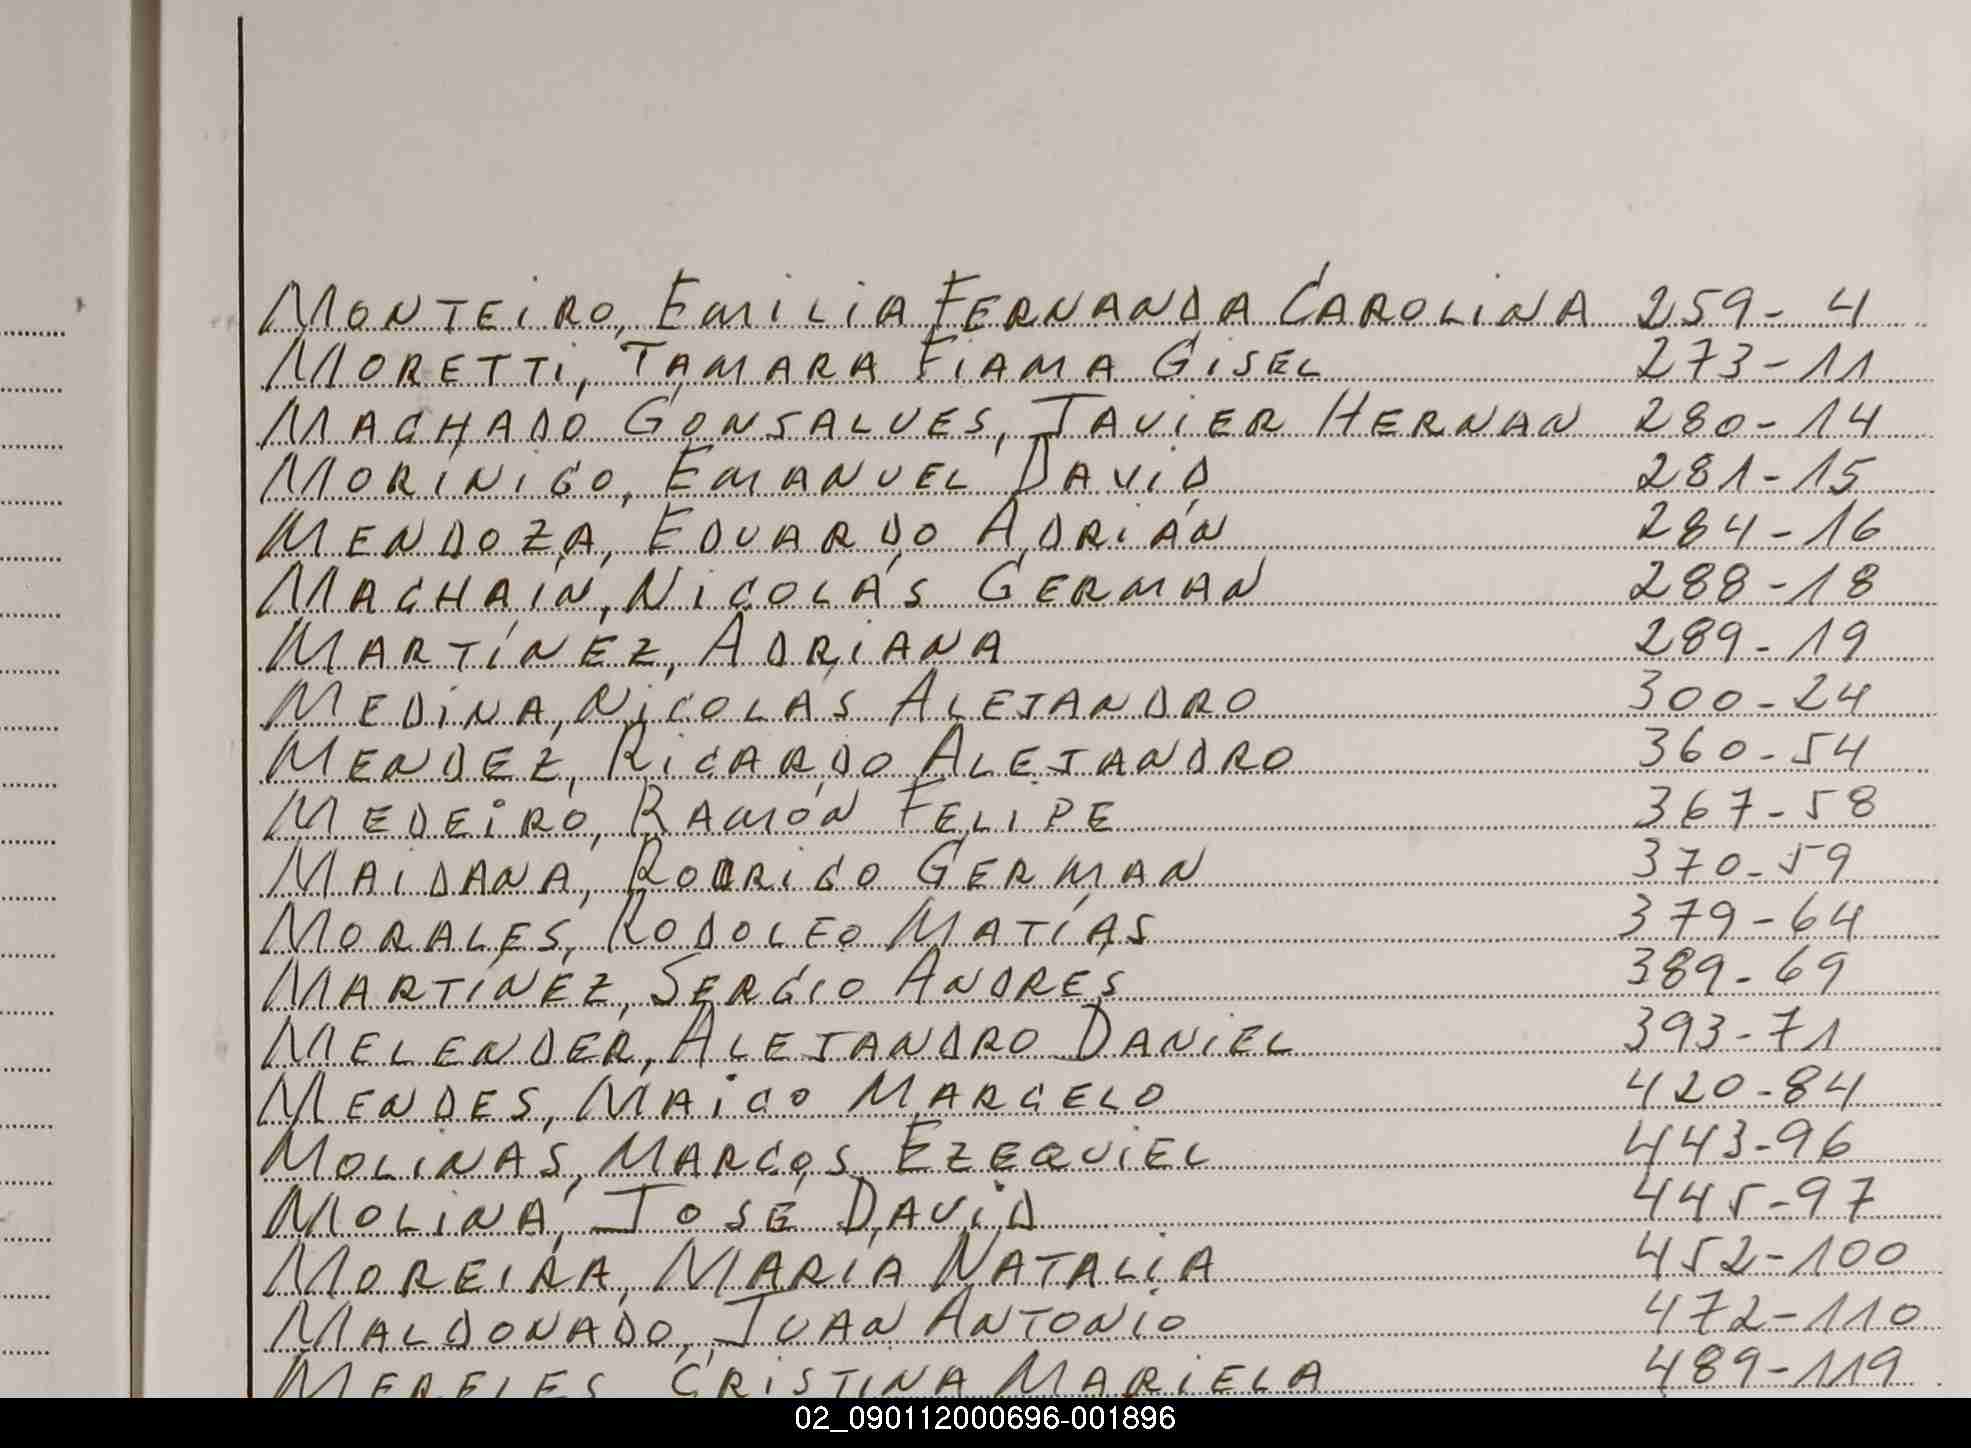 MONTEIRO, EMILIA FERNANDA CAROLINA 259- 4
MORETTI, TAMARA FIAMA GISEL 273-11
MACHADO GONSALVES, JAVIER HERNAN 280-14
MORINIGO, EMANUEL DAVID 281-15
MENDOZA, EDUARDO ADRIÁN 284-16
MACHAÍN, NICOLÁS GERMAN 288-18
MARTÍNEZ, ADRIANA 289-19
MEDINA, NICOLAS ALEJANDRO 300-24
MENDEZ, RICARDO ALEJANDRO 360-54
MEDEIRO, RAMÓN FELIPE 367-58
MAIDANA, RODRIGO GERMAN 370-59
MORALES, RODOLFO MATÍAS 379-64
MARTINEZ, SERGIO ANDRES 389-69
MELENDER, ALEJANDRO DANIEL 393-71
MENDES, MAICO MARCELO 420-84
MOLINAS, MARCOS EZEQUIEL 443-96
MOLINA, JOSÉ DAVID 445-97
MOREIRA, MARIA NATALIA 452-100
MALDONADO, JUAN ANTONIO 472-110
MERELES CRISTINA MARIELA 489-119
02_090112000696-001896